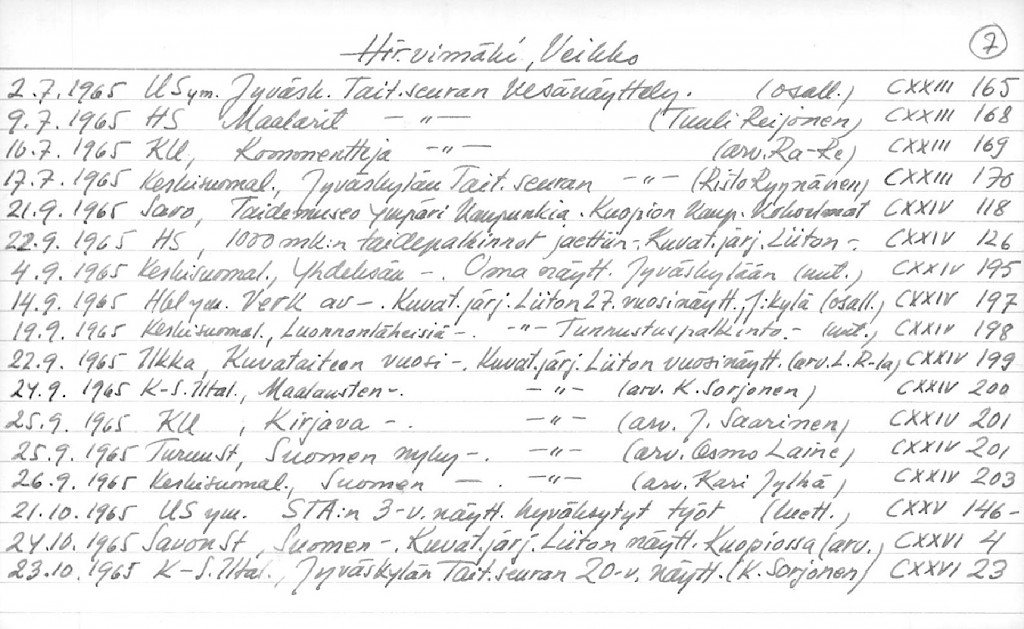 7
Hirvimäki, Veikko
2.7.1965 US ym. Jyväsk. Tait.seuran Kesänäyttely. (osall.) CXXIII 165
9.7.1965 HS Maalarit — " — (Tuuli Reijonen) CXXIII 168
10.7.1965 KU, Kommenttja — " — (arv. Ra-Re) CXXIII 169
17.7.1965 Keskisuomal., Jyväskylän Tait.seuran — " — (Risto Rynnänen) CXXIII 170
21.9.1965 Savo, Taidemuseo ympäri Kaupunkia. Kuopion Kaup. Kokoelmat CXXIV 118
22.9.1965 HS, 1000 mk:n taidepalkinnot jaettiin -. Kuvat.järj. Liiton -. CXXIV 126
4.9.1965 Keskisuomal., Yhdeksän -. Oma näytt. Jyväskylään (uut.) CXXIV 195
14.9.1965 Hbl ym. Verk av -. Kuvat.järj. Liiton 27. vuosinäytt., J:kylä (osall.) CXXIV 197
19.9.1965 Keskisuomal., Luonnonläheisiä -. — " — Tunnustuspalkinto. - (uut., CXXIV 198
22.9.1965 Ilkka, Kuvataiteen vuosi -. Kuvat.järj. Liiton vuosinäytt. (arv. L. R-la) CXXIV 199
24.9.1965 K-S. Iltal., Maalausten -. — " — (arv. K. Sorjonen) CXXIV 200
25.9.1965 KU, Kirjava -. — " — (arv. J. Saarinen) CXXIV 201
25.9.1965 TurunSt, Suomen nyky -. — " — (arv. Osmo Laine) CXXIV 201
26.9.1965 Keskisuomal., Suomen — . — " — (arv. Kari Jylhä) CXXIV 203
21.10.1965 US ym. STA:n 3-v. näytt. hyväksytyt työt (luett., CXXV 146-
24.10.1965 SavonSt, Suomen -. Kuvat.järj. Liiton näytt. Kuopiossa (arv.) CXXVI 4
23.10.1965 K-S. Iltal., Jyväskylän Tait.seuran 20-v. näytt. (K. Sorjonen) CXXVI 23